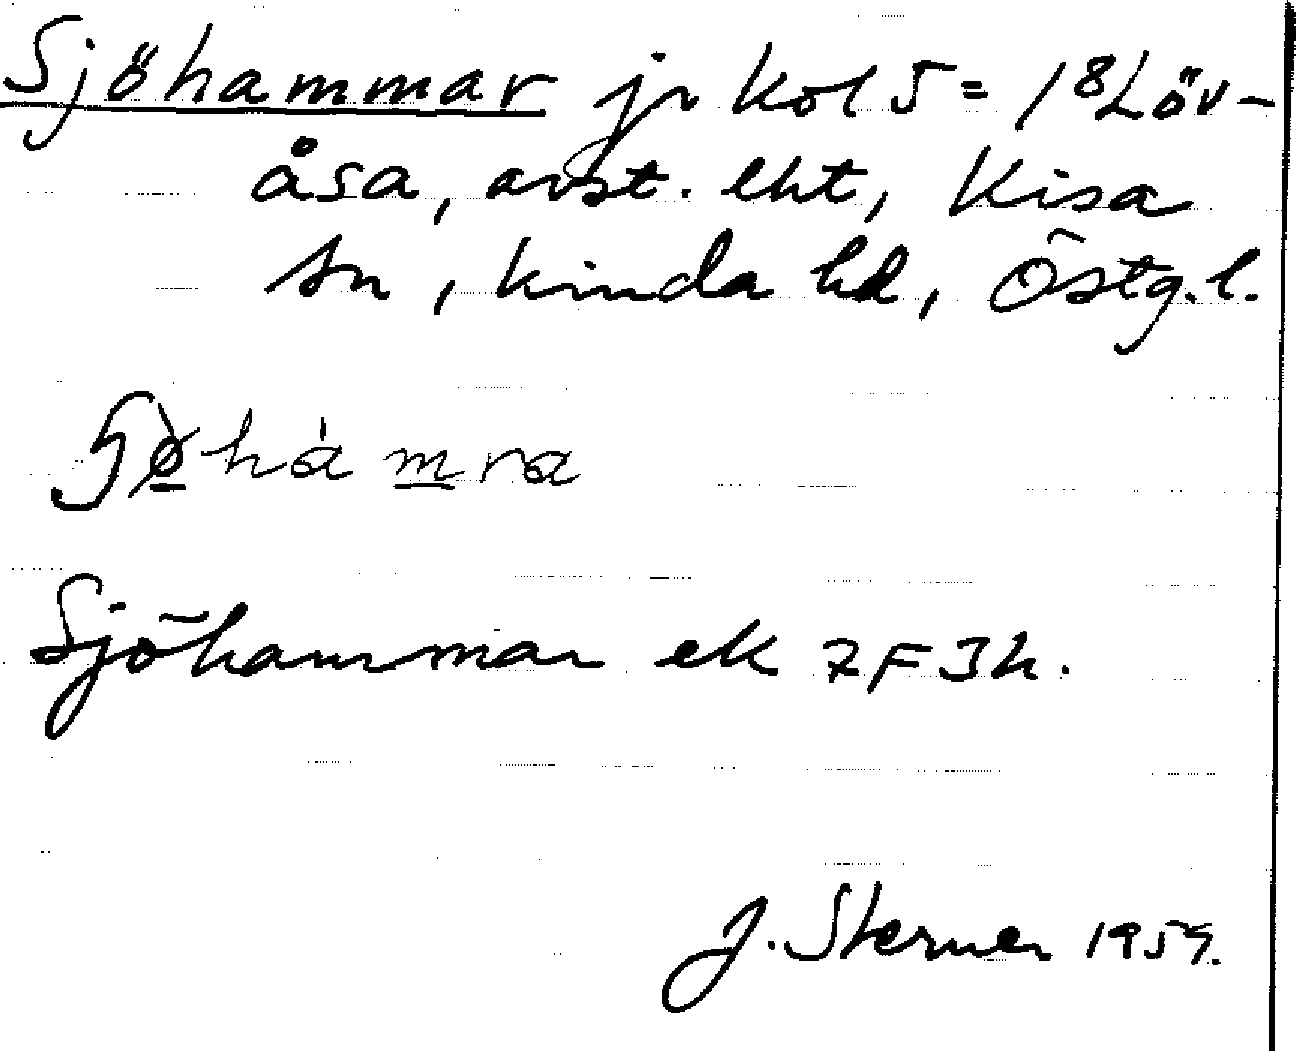 Sjöhammar jr kol 5 = 1⁸ Löv-
åsa, avst. lht, Kisa
sn, Kinda hd, Östg.l.
hàmra
Sjöhammar ek 7F3h.
J. Sterner 1959.